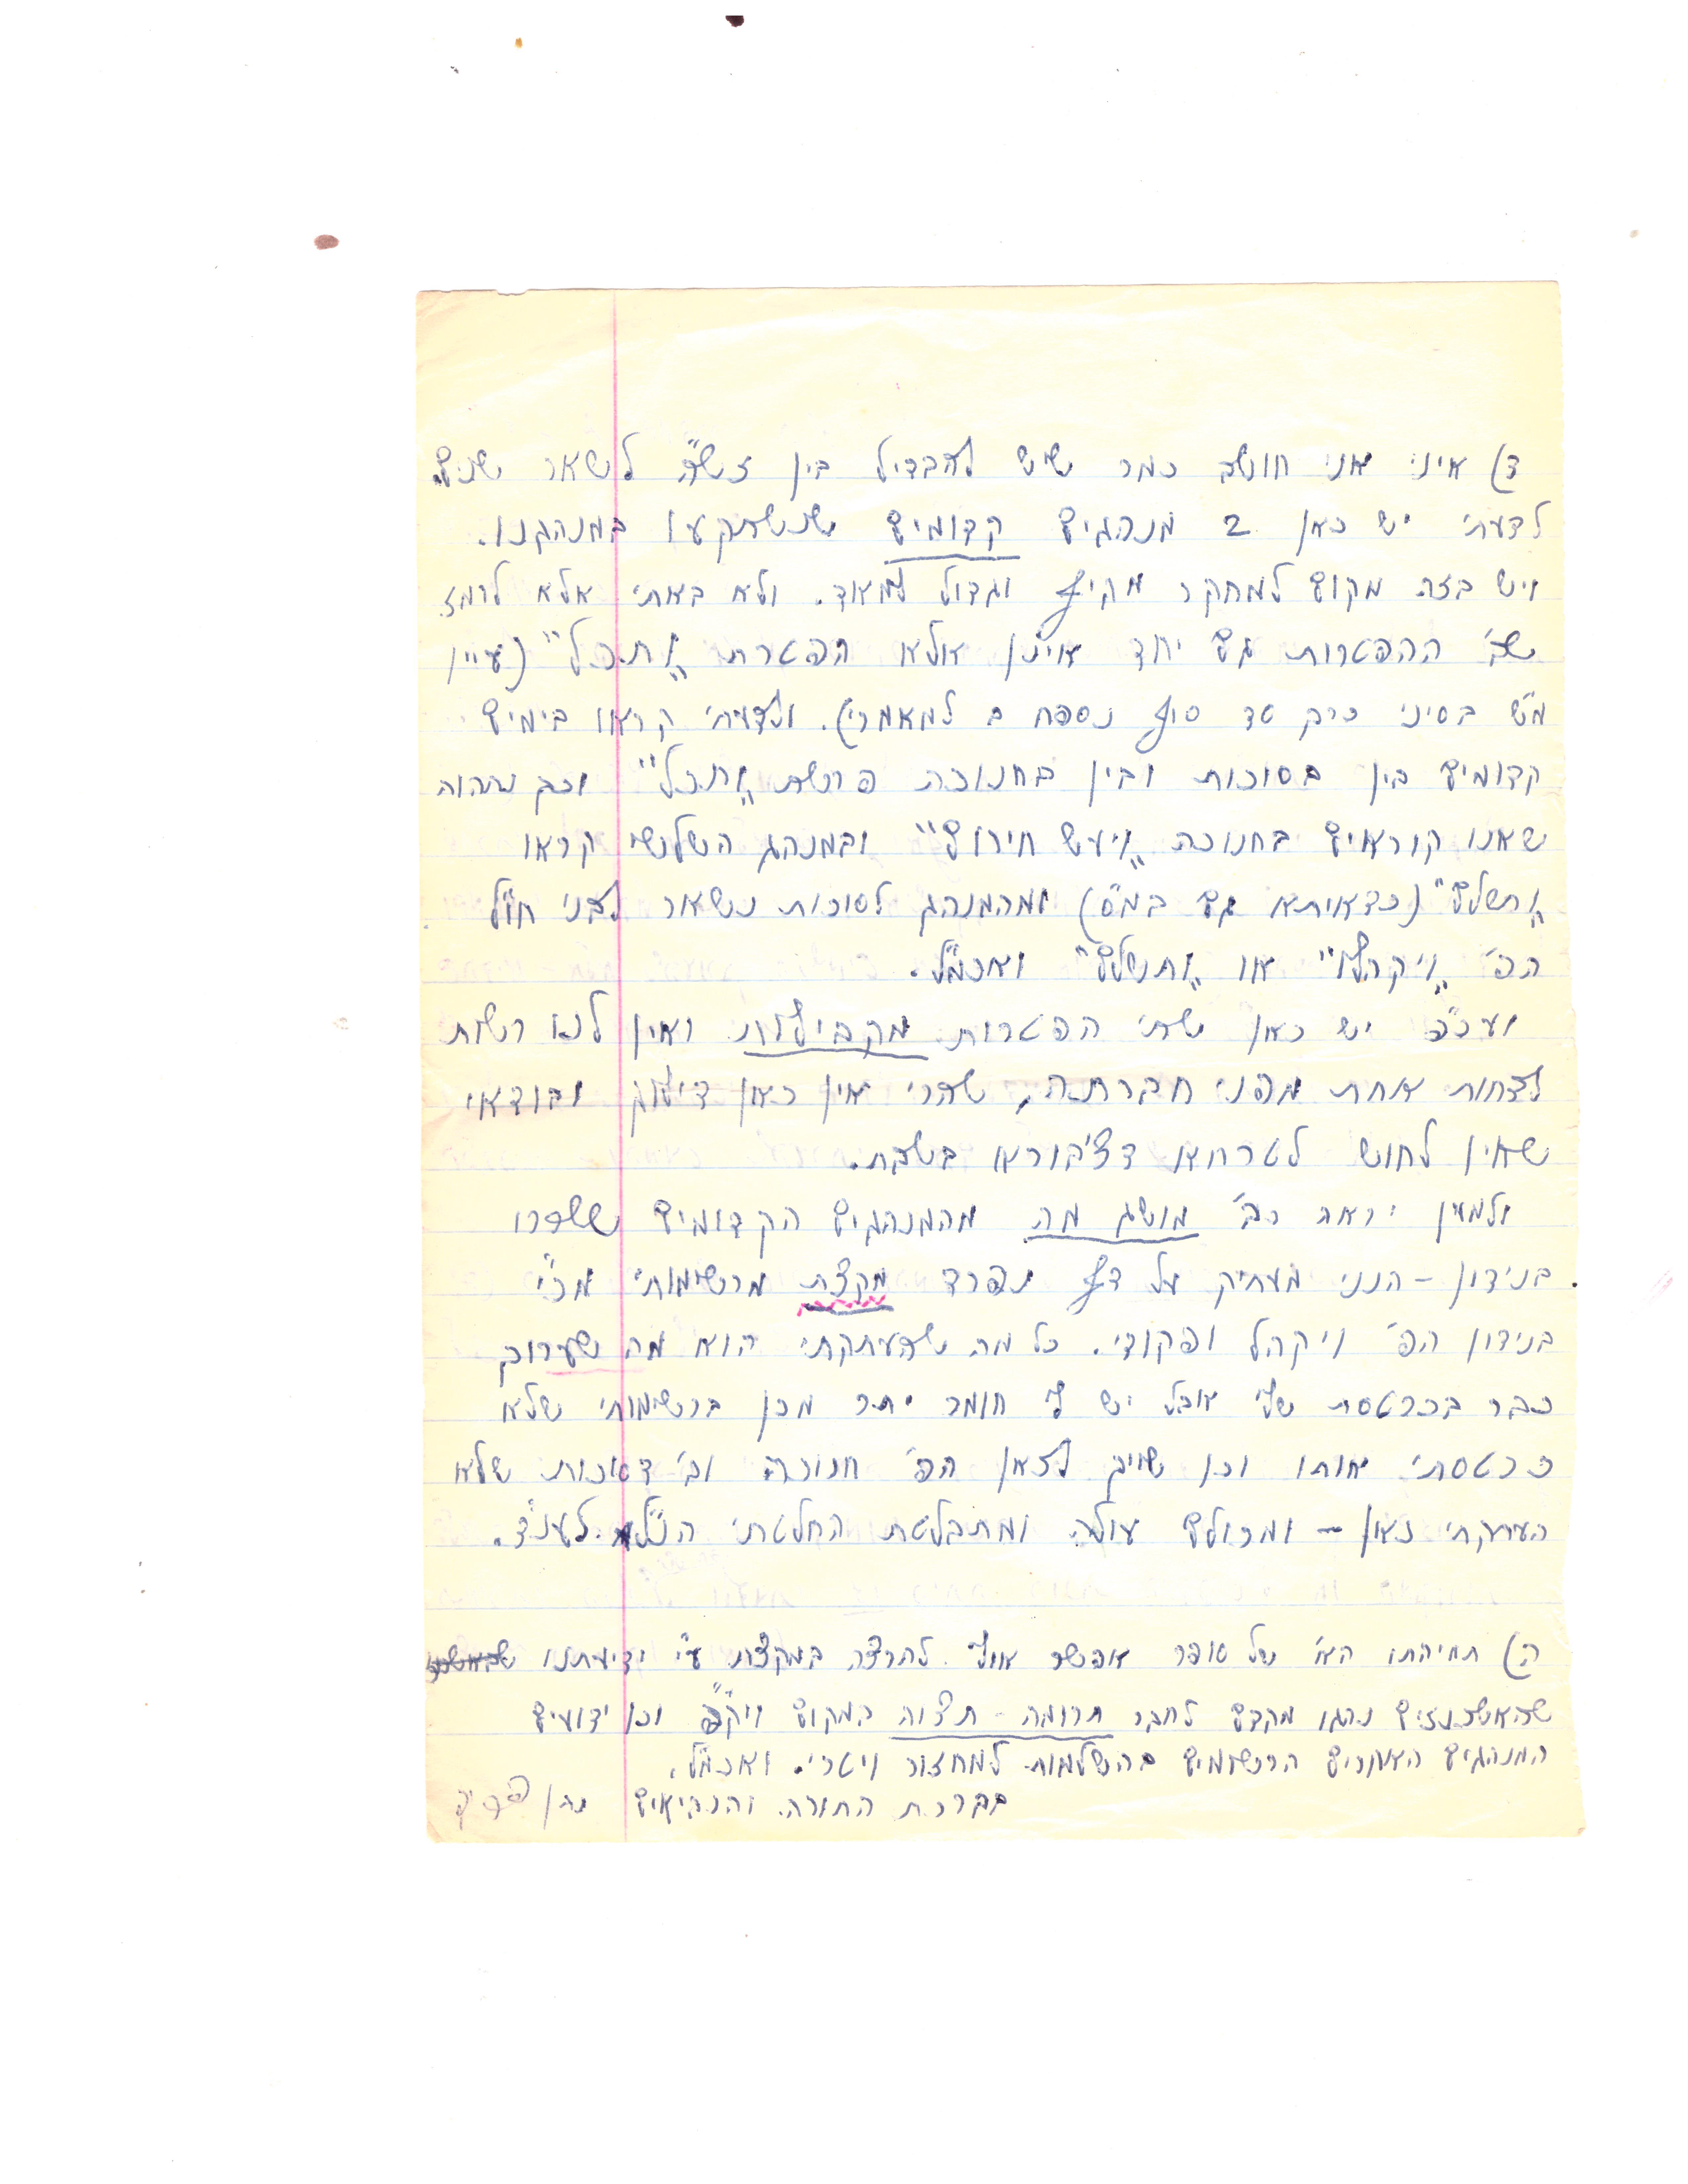 ד) איני אני חושב כמר שיש להבדיל בין זש"ק לשאר שנים.
לדעתי יש כאן 2 מנהגים קדומים שנשתקעו במנהגנו.
ויש בזה מקום למחקר מקיף וגדול למאוד. ולא באתי אלא לרמז
שב' ההפטרות גם יחד אינן אלא הפטרת "ותכל" (עיין
מ"ש בסיני כרך סד סוף נספח ב למאמרי). ולדעתי קראו בימים
קדומים בין בסוכות ובין בחנוכה פרשת "ותכל" וכך נתהוה
שאנו קוראים בחנוכה "ויעש חירום" ובמנהג השלישי קראו
"ותשלם" (כדאיתא גם במ"ס) ומהמנהג לסוכות נשאר לבני חו"ל
הפ' "ויקהלו" או "ותשלם" ואכמ"ל.
ועכ"פ יש כאן שתי הפטרות מקבילות ואין לנו רשות
לדחות אחת מפני חברתה, שהרי אין כאן דילוג ובודאי
שאין לחוש לטרחא דציבורא בשבת.
ולמען יראה כב' מושג מה מהמנהגים הקדומים ששררו
בנידון - הנני מעתיק על דף נפרד מקצת מרשימותי מכ"י
בנידון הפ' ויקהל ופקודי. כל מה שהעתקתי הוא מה שערוך
כבר בכרטסת שלי אבל יש לי חומר יתר מכן ברשימותי שלא
כרטסתי אותו וכן שייך לכאן הפ' חנוכה וב' דסוכות שלא
העתקתי כאן - ומכולם עולה ומתבלטת החלטתי הנ"ל. לענ"ד.
ה) תמיהתו הא' של סופר אפשר אולי לתרצה במקצת ע"י ידיעתנו
שהאשכנזים נהגו מקדם לחבר תרומה - תצוה במקום ויק"פ וכן ידועים
המנהגים האחרים הרשומים בהשלמות למחזור ויטרי. ואכמ"ל.
בברכת התורה והנביאים נתן פריד